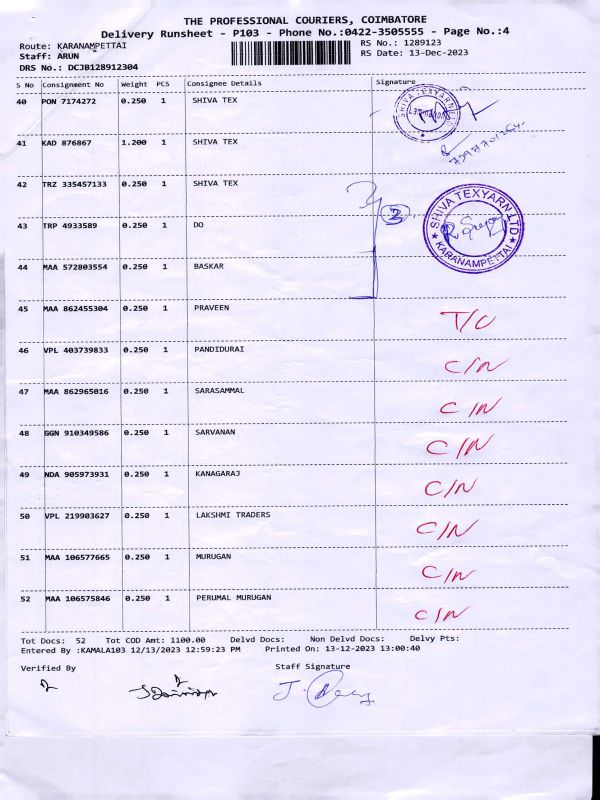 THE PROFESSIONAL COURIERS, COIMBATORE
Delivery Runsheet - P103 - Phone No.:0422-3505555 - Page No.:4
Route: KARANAMPETTAI
RS No.: 1289123
Staff: ARUN
RS Date: 13-Dec-2023
DRS No.: DCJB128912304
S No Consignment No Weight PCS Consignee Details Signature
40 PON 7174272 0.250 1 SHIVA TEX
SHIVA TEXYARN LTD
41 KAD 876867 1.200 1 SHIVA TEX
42 TRZ 335457133 0.250 1 SHIVA TEX
3
SHIVA TEXYARN LTD
KARANAMPETTAI
43 TRP 4933589 0.250 1 DO
44 MAA 572803554 0.250 1 BASKAR
45 MAA 862455304 0.250 1 PRAVEEN T/C
46 VPL 403739833 0.250 1 PANDIDURAI C/N
47 MAA 862965016 0.250 1 SARASAMMAL C/N
48 GGN 910349586 0.250 1 SARVANAN C/N
49 NDA 905973931 0.250 1 KANAGARAJ C/N
50 VPL 219903627 0.250 1 LAKSHMI TRADERS C/N
51 MAA 106577665 0.250 1 MURUGAN C/N
52 MAA 106575846 0.250 1 PERUMAL MURUGAN C/N
Tot Docs: 52 Tot COD Amt: 1100.00 Delvd Docs: Non Delvd Docs: Delvy Pts:
Entered By :KAMALA103 12/13/2023 12:59:23 PM Printed On: 13-12-2023 13:00:40
Verified By Staff Signature